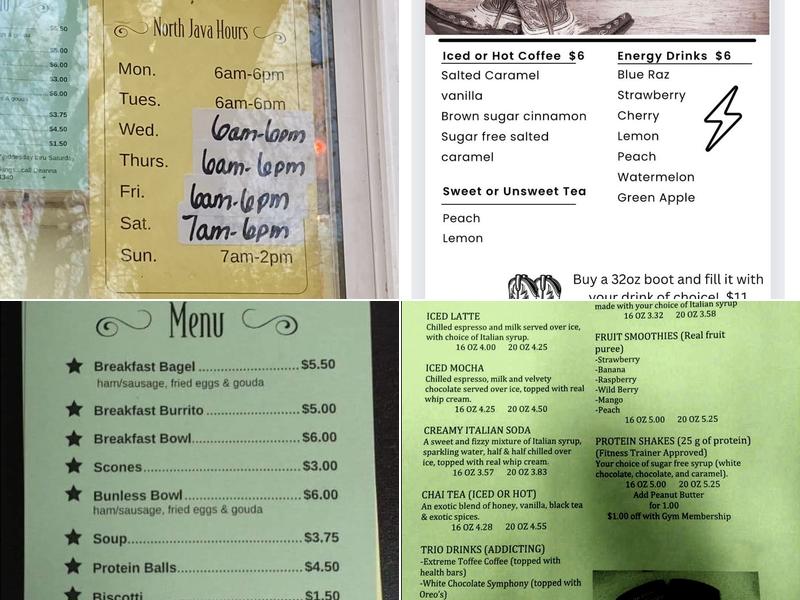 $5.50
$5.00
$6.00
$3.00
$6.00
$3.75
$4.50
$1.50
North Java Hours
Mon. 6am-6pm
Tues. 6am-6pm
Wed. 6am-6pm
Thurs. 6am-6pm
Fri. 6am-6pm
Sat. 7am-6pm
Sun. 7am-2pm
Iced or Hot Coffee $6
Salted Caramel
vanilla
Brown sugar cinnamon
Sugar free salted
caramel
Sweet or Unsweet Tea
Peach
Lemon
Energy Drinks $6
Blue Raz
Strawberry
Cherry
Lemon
Peach
Watermelon
Green Apple
Buy a 32oz boot and fill it with
your drink of choice! $11
Menu
Breakfast Bagel $5.50
ham/sausage, fried eggs & gouda
Breakfast Burrito $5.00
Breakfast Bowl $6.00
Scones $3.00
Bunless Bowl $6.00
ham/sausage, fried eggs & gouda
Soup $3.75
Protein Balls $4.50
Biscotti $1.50
ICED LATTE
Chilled espresso and milk served over ice,
with choice of Italian syrup.
16 OZ 4.00 20 OZ 4.25
ICED MOCHA
Chilled espresso, milk and velvety
chocolate served over ice, topped with real
whip cream.
16 OZ 4.25 20 OZ 4.50
CREAMY ITALIAN SODA
A sweet and fizzy mixture of Italian syrup,
sparkling water, half & half chilled over
ice, topped with real whip cream.
16 OZ 3.57 20 OZ 3.83
CHAI TEA (ICED OR HOT)
An exotic blend of honey, vanilla, black tea
& exotic spices.
16 OZ 4.28 20 OZ 4.55
TRIO DRINKS (ADDICTING)
-Extreme Toffee Coffee (topped with
health bars)
-White Chocolate Symphony (topped with
Oreo's)
made with your choice of Italian syrup
16 OZ 3.32 20 OZ 3.58
FRUIT SMOOTHIES (Real fruit
puree)
-Strawberry
-Banana
-Raspberry
-Wild Berry
-Mango
-Peach
16 OZ 5.00 20 OZ 5.25
PROTEIN SHAKES (25 g of protein)
(Fitness Trainer Approved)
Your choice of sugar free syrup (white
chocolate, chocolate, and caramel).
16 OZ 5.00 20 OZ 5.25
Add Peanut Butter
for 1.00
$1.00 off with Gym Membership